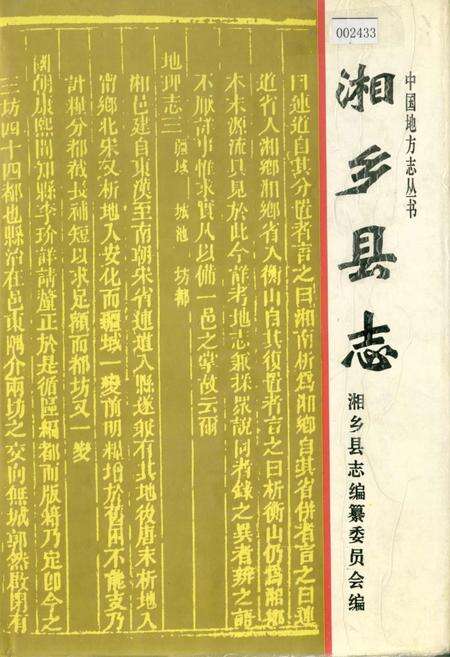 002433
中国地方志丛书
湘乡县志
湘乡县志编纂委员会编
曰連道自其分置者言之曰湘南析爲湘鄉自其省併者言之曰連
道省入湘鄉湘鄉省入衡山自其復置者言之曰析衡山仍爲湘鄉
本末源流具見於此今詳考地志參採眾說同者錄之異者辨之語
不厭詳事惟求實凡以備一邑之掌故云爾
地理志三 疆域 城池 坊都
湘邑建自東漢至南朝宋省連道入縣遂兼有其地後唐末析地入
甯鄉北宋又析地入安化而疆域一變前明糧增於舊困不能支乃
計糧分都截長補短以求足額而都坊又一變
國朝康熙間知縣李玠詳請釐正於是循區編都而版籍乃定即今之
三坊四十四都也縣治在邑東隅介兩坊之交向無城郭然啟閉有